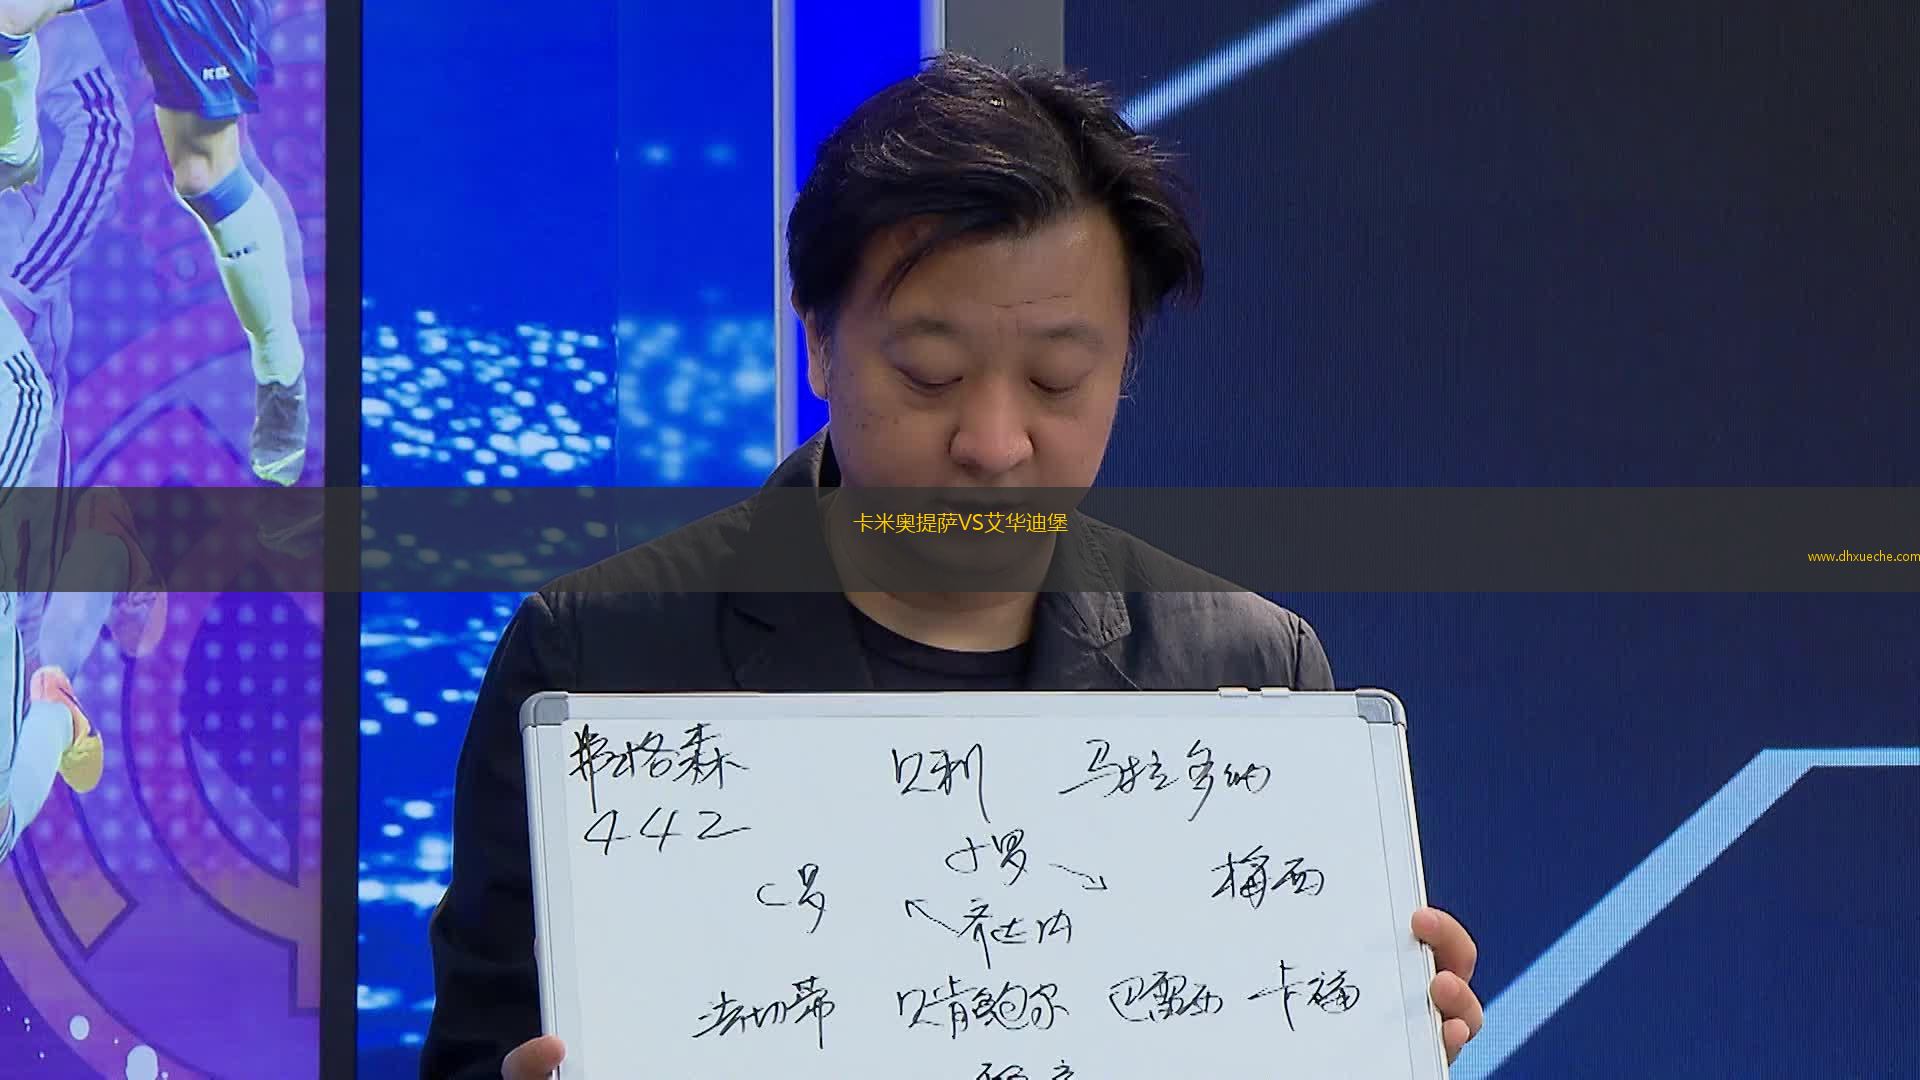 卡米奥提萨VS艾华迪堡
www.dhxueche.com
弗格森 贝利 马拉多纳
442
小罗
C罗 梅西
齐达内
法切蒂 贝肯鲍尔 巴雷西 卡福